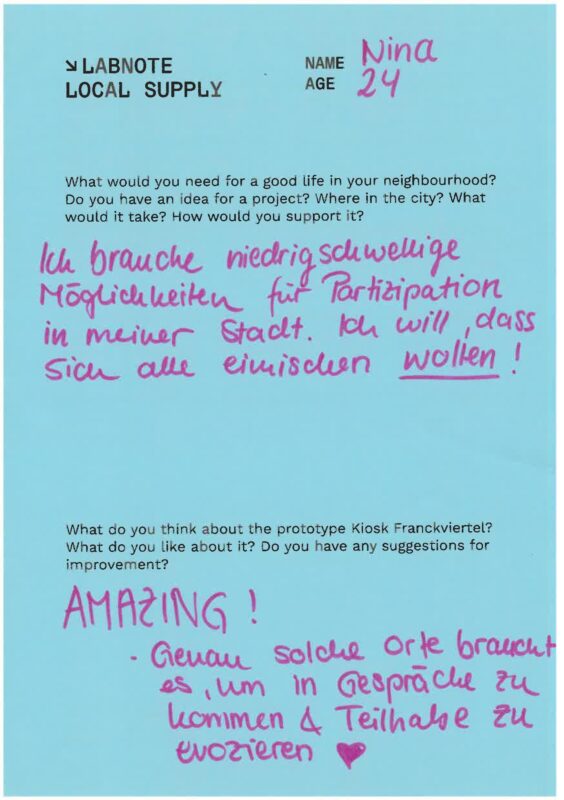 ↘ LABNOTE
LOCAL SUPPLY
NAME Nina
AGE 24
What would you need for a good life in your neighbourhood?
Do you have an idea for a project? Where in the city? What
would it take? How would you support it?
Ich brauche niedrigschwellige
Möglichkeiten für Partizipation
in meiner Stadt. Ich will, dass
sich alle einmischen wollen!
What do you think about the prototype Kiosk Franckviertel?
What do you like about it? Do you have any suggestions for
improvement?
AMAZING!
· Genau solche Orte braucht
es, um in Gespräche zu
kommen & Teilhabe zu
evozieren ♥